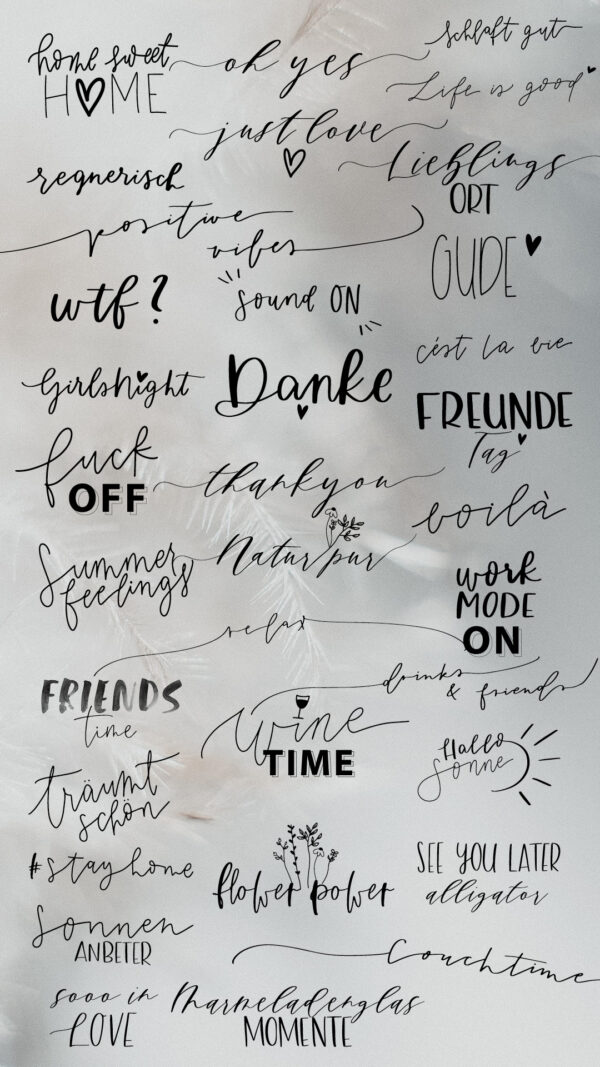 home sweet
HOME
oh yes
schlaft gut
Life is good
just love
regnerisch
Lieblings
ORT
positive
vibes
GUDE
wtf?
Sound ON
c'ést la vie
GirlsNight
Danke
FREUNDE
Tag
fuck
OFF
thankyou
voilà
Summer
feelings
Natur pur
work
MODE
ON
relax
FRIENDS
time
drinks
& friends
wine
TIME
Hallo
Sonne
träumt
schön
#stayhome
flower power
SEE YOU LATER
alligator
Sonnen
ANBETER
Couchtime
sooo in
LOVE
Marmeladenglas
MOMENTE